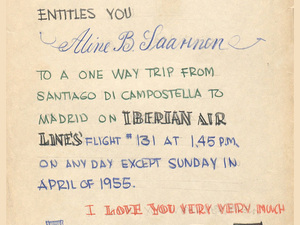 ENTITLES YOU
Aline B Saarinen
TO A ONE WAY TRIP FROM
SANTIAGO DI CAMPOSTELLA TO
MADRID ON IBERIAN AIR
LINES FLIGHT #131 AT 1.45 P.M.
ON ANY DAY EXCEPT SUNDAY IN
APRIL OF 1955.
I LOVE YOU VERY VERY MUCH